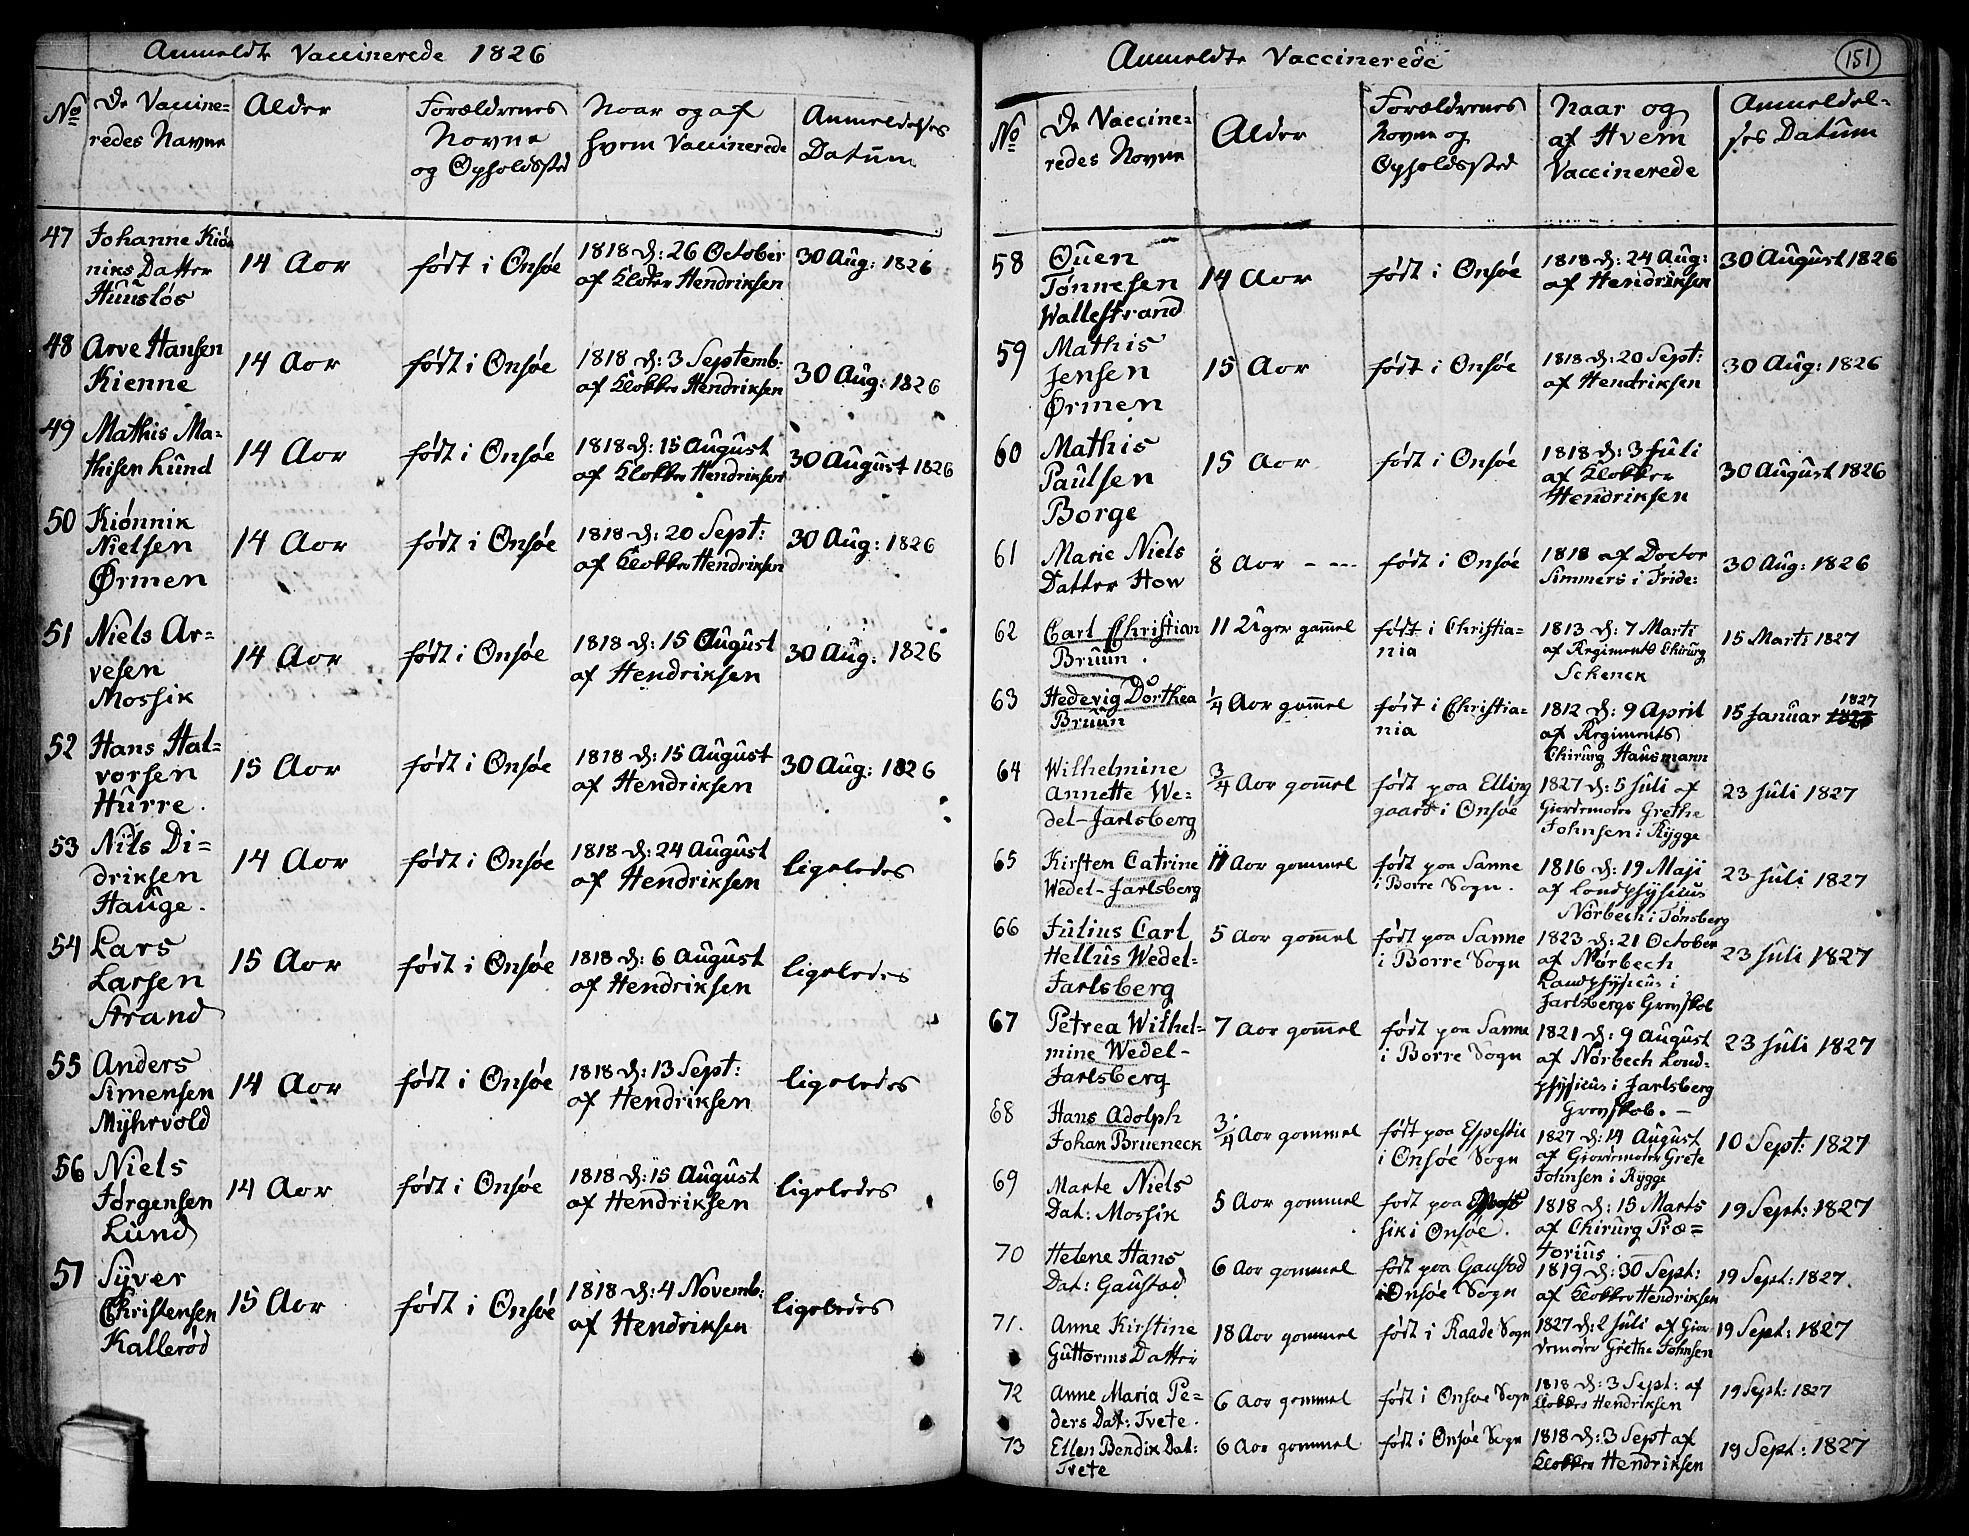 Anmeldte Vaccinerede 1826
No
De Vaccine=
redes Navne
Alder
Forældrenes
Novne
og Opholdssted
Noar og af
hvem Vaccinerede
Anmeldelses
Datum
47
Johanne Kiøn
niks Datter
Huusløs
14 Aor
født i Onsøe
1818 d: 26 October
af Klokker Hendriksen
30 Aug: 1826
48
Arve Hansen
Kienne
14 Aor
født i Onsøe
1818 d: 3 Septemb:
af Klokker Hendriksen
30 Aug: 1826
49
Mathis Ma-
thisen Lund
14 Aor
født i Onsøe
1818 d: 15 August
af Klokker Hendriksen
30 August 1826
50
Kiønnik
Nielsen
Ørmen
14 Aor
født i Onsøe
1818 d: 20 Sept:
af Klokker Hendriksen
30 Aug: 1826
51
Niels Ar-
vesen
Mossik
14 Aor
født i Onsøe
1818 d: 15 August
af Hendriksen
30 Aug: 1826
52
Hans Hal-
vorsen
Hurre.
15 Aor
født i Onsøe
1818 d: 15 August
af Hendriksen
30 Aug: 1826
53
Nils Di=
driksen
Hauge.
14 Aor
født i Onsøe
1818 d: 24 August
af Hendriksen
ligeledes
54
Lars
Larsen
Strand
15 Aor
født i Onsøe
1818 d: 6 August
af Hendriksen
ligeledes
55
Anders
Simensen
Myhrvold
14 Aor
født i Onsøe
1818 d: 13 Sept:
af Hendriksen
ligeledes
56
Niels
Jørgensen
Lund
14 Aor
født i Onsøe
1818 d: 15 August
af Hendriksen
ligeledes
57
Syver
Christensen
Kallerød
15 Aor
født i Onsøe
1818 d: 4 Novemb:
af Hendriksen
ligeledes
Anmeldte Vaccinerede
151
No
De Vaccine=
redes Novne
Alder
Forældrenes
Novne og
Opholdssted
Naar og
af Hvem
Vaccinerede
Anmeldel-
ses Datum
58
Ouen
Tønnesen
Wallestrand
14 Aor
født i Onsøe
1818 d: 24 Aug:
af Hendriksen
30 August 1826
59
Mathis
Jensen
Ørmen
15 Aor
født i Onsøe
1818 d: 20 Sept:
af Hendriksen
30 Aug: 1826
60
Mathis
Paulsen
Borge
15 Aor
født i Onsøe
1818 d: 3 Juli
af Klokker
Hendriksen
30 August 1826
61
Marie Niels
Datter How
8 Aor - --
født i Onsøe
1818 af Doctor
Simmers i Fride:
30 Aug: 1826
62
Carl Christian
Bruun.
11 Uger gammel
født i Christia=
nia
1813 d: 7 Marti
af Regiments Chirurg
Schenck
15 Marti 1827
63
Hedevig Dorthea
Bruun
1/4 Aor gammel
født i Christia=
nia
1812 d: 9 April
af Regiments
Chirurg Hausmann
1827
15 Januar
64
Wilhelmine
Annette We-
del-Jarlsberg
3/4 Aor gammel
født poa Elling
gaard i Onsøe
1827 d: 5 Juli af
Giordemoder Grethe
Johnsen i Rygge
23 Juli 1827
65
Kirsten Catrine
Wedel-Jarlsberg
11 Aor gommel
født poa Sanne
i Borre Sogn.
1816 d: 19 Maji
af Londphysicus
Nørbech i Tønsberg
23 Juli 1827
66
Julius Carl
Hellius Wedel-
Jarlsberg
5 Aor gommel
født poa Sanne
i Borre Sogn
1823 d: 21 October
af Nørbech
Landphysicus i
Jarlsbergs Grevskob
23 Juli 1827
67
Petrea Wilhel-
mine Wedel-
Jarlsberg
7 Aor gommel
født poa Sanne
i Borre Sogn
1821 d: 9 August
af Nørbech Lond-
physicus i Jarlsberg
Grevskob. -
23 Juli 1827
68
Hans Adolph
Johan Brueneck
3/4 Aor gommel
født poa Espestic
i Onsøe Sogn
1827 d: 14 August
af Giordemoder Grete
Johnsen i Rygge
10 Sept: 1827
69
Marte Niels
Dat: Mossik
5 Aor gommel
født poa
sik i Onsøe.
1818 d: 15 Marts
af Chirurg Præ=
torius
19 Sept: 1827
70
Helene Hans
Dat: Gaustad
6 Aor gommel
født poa Gaustod
i Onsøe Sogn
1819 d: 30 Sept:
af Klokker Hendriksen
19 Sept: 1827.
71.
Anne Kirstine
Guttorms Datter
18 Aor gommel
født i Raade Sogn
1827 d: 2 Juli af Gior-
demoder Grethe Johnsen
19 Sept: 1827
72
Anne Maria Pe=
ders Dat: Tvete.
6 Aor gommel
født i Onsøe Sogn
1818 d: 3 Sept: af
Klokker Hendriksen
19 Sept: 1827
73
Ellen Bendik Dat:
Tvete
6 Aor gommel
født i Onsøe Sogn
1818 d: 3 Sept af
Klokker Hendriksen
19 Sept: 1827